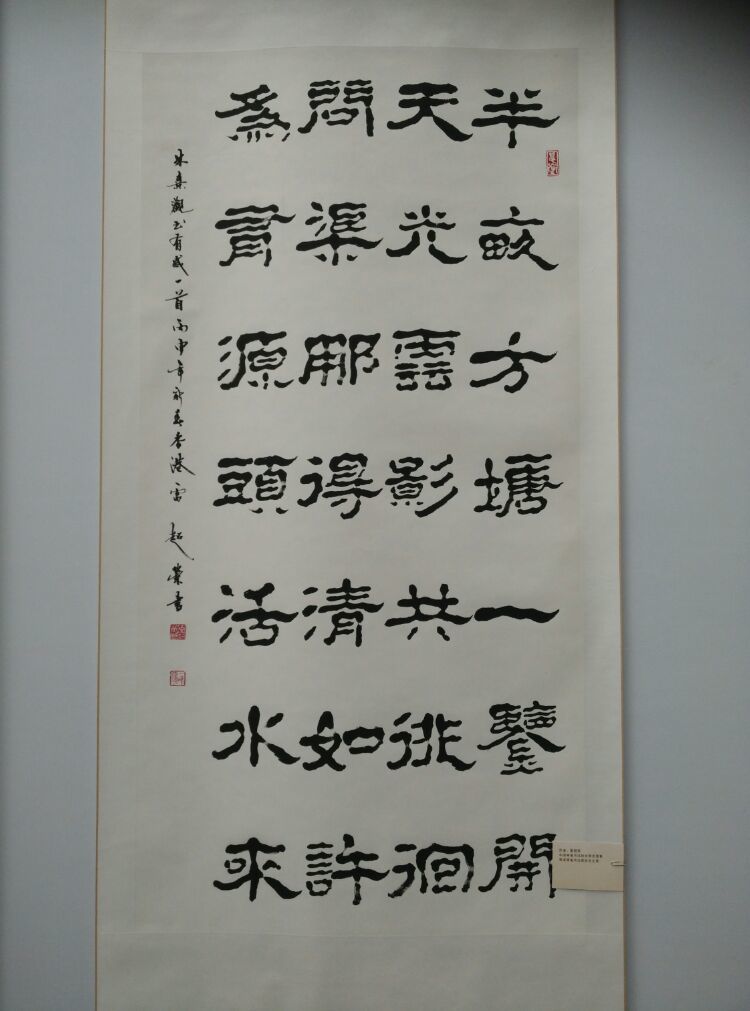 半畝方塘一鑒開
天光雲影共徘徊
問渠那得清如許
為有源頭活水來
朱熹觀書有感一首丙申年新春香港雷超榮書